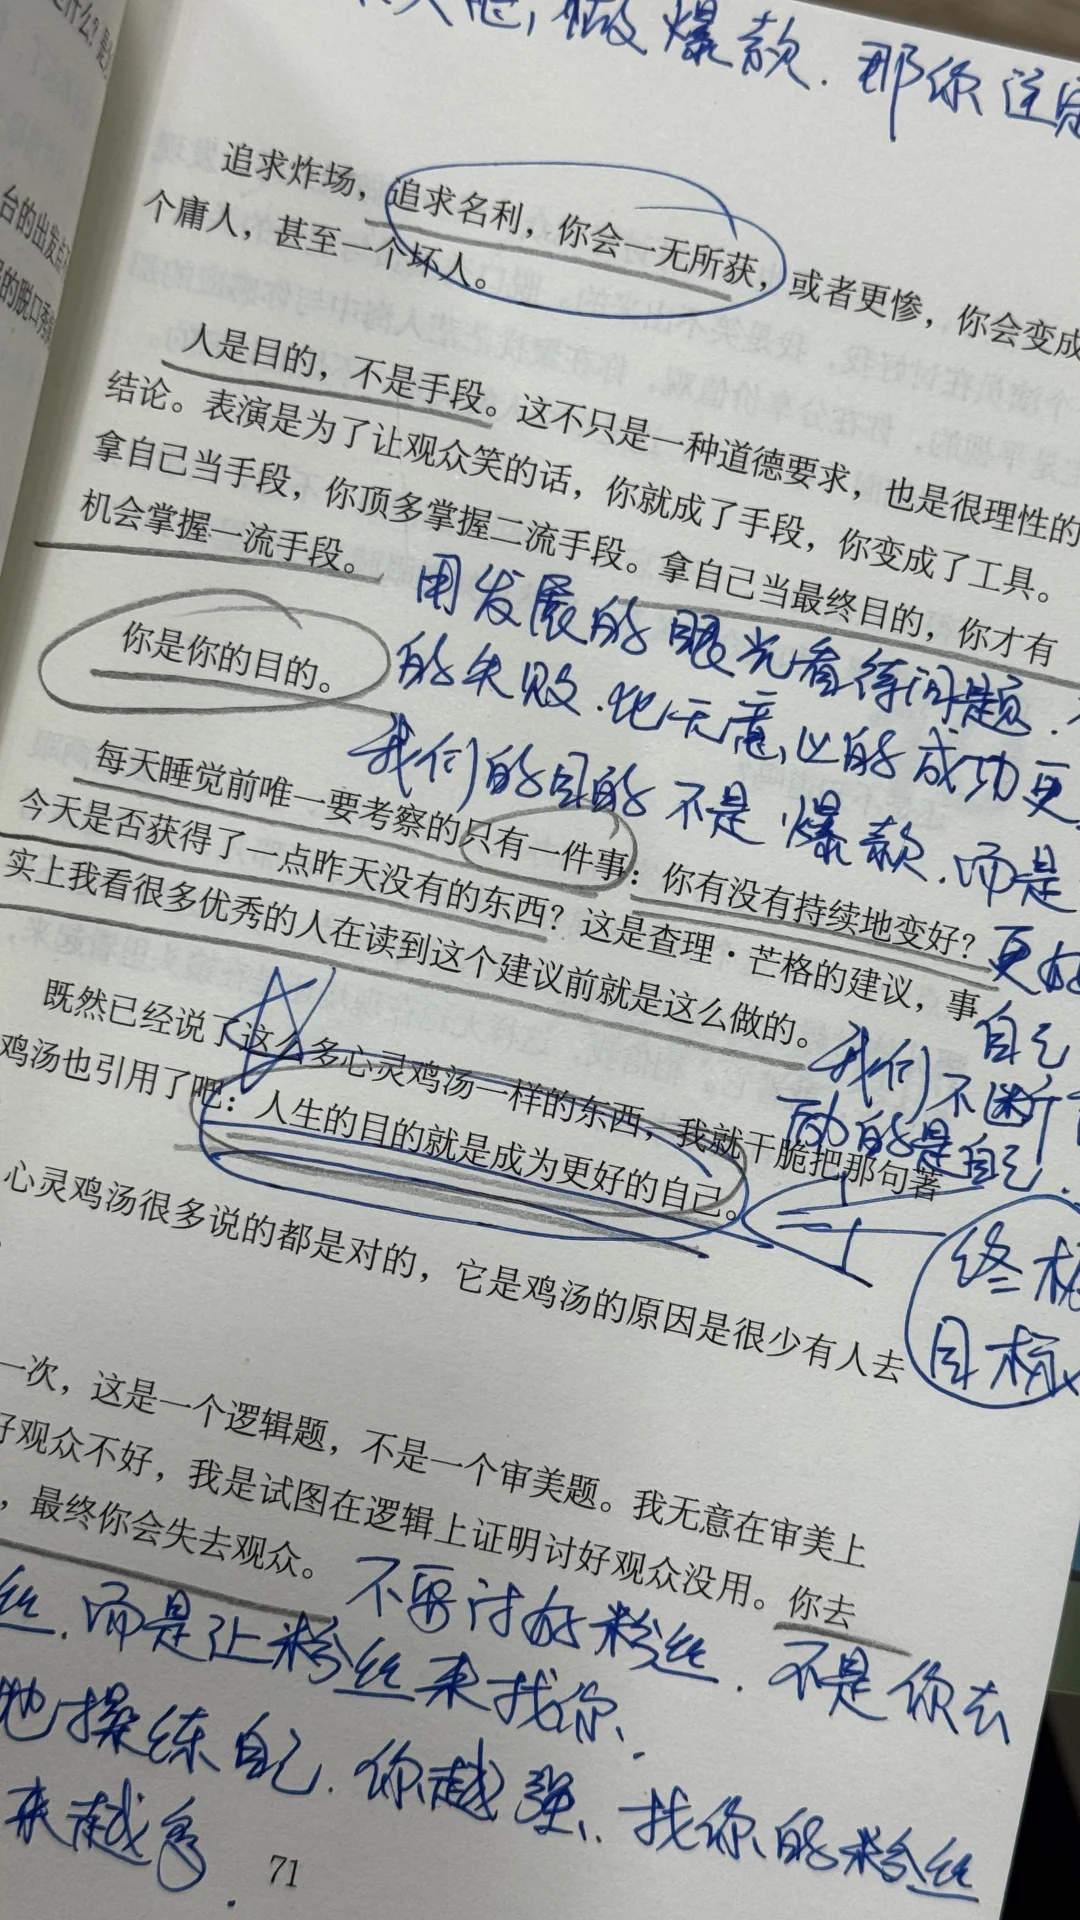 做爆款.那你注定
追求炸场，追求名利，你会一无所获，或者更惨，你会变成
个庸人，甚至一个坏人。
人是目的，不是手段。这不只是一种道德要求，也是很理性的
结论。表演是为了让观众笑的话，你就成了手段，你变成了工具。
拿自己当手段，你顶多掌握二流手段。拿自己当最终目的，你才有
机会掌握一流手段。
用发展的眼光看待问题.
你是你的目的。
的失败.比无意义的成功更
我们的目的不是爆款.而是
每天睡觉前唯一要考察的只有一件事：你有没有持续地变好？
更好
今天是否获得了一点昨天没有的东西？这是查理·芒格的建议，事
自己
实上我看很多优秀的人在读到这个建议前就是这么做的。
我们不断
的是自己.
既然已经说了这么多心灵鸡汤一样的东西，我就干脆把那句著
鸡汤也引用了吧：人生的目的就是成为更好的自己。
终极
目标
心灵鸡汤很多说的都是对的，它是鸡汤的原因是很少有人去
一次，这是一个逻辑题，不是一个审美题。我无意在审美上
好观众不好，我是试图在逻辑上证明讨好观众没用。你去
，最终你会失去观众。
不要讨好粉丝.不是你去
丝.而是让粉丝来找你.
地操练自己.你越强.找你的粉丝
来越多.
71
台的出发点
的脱口秀